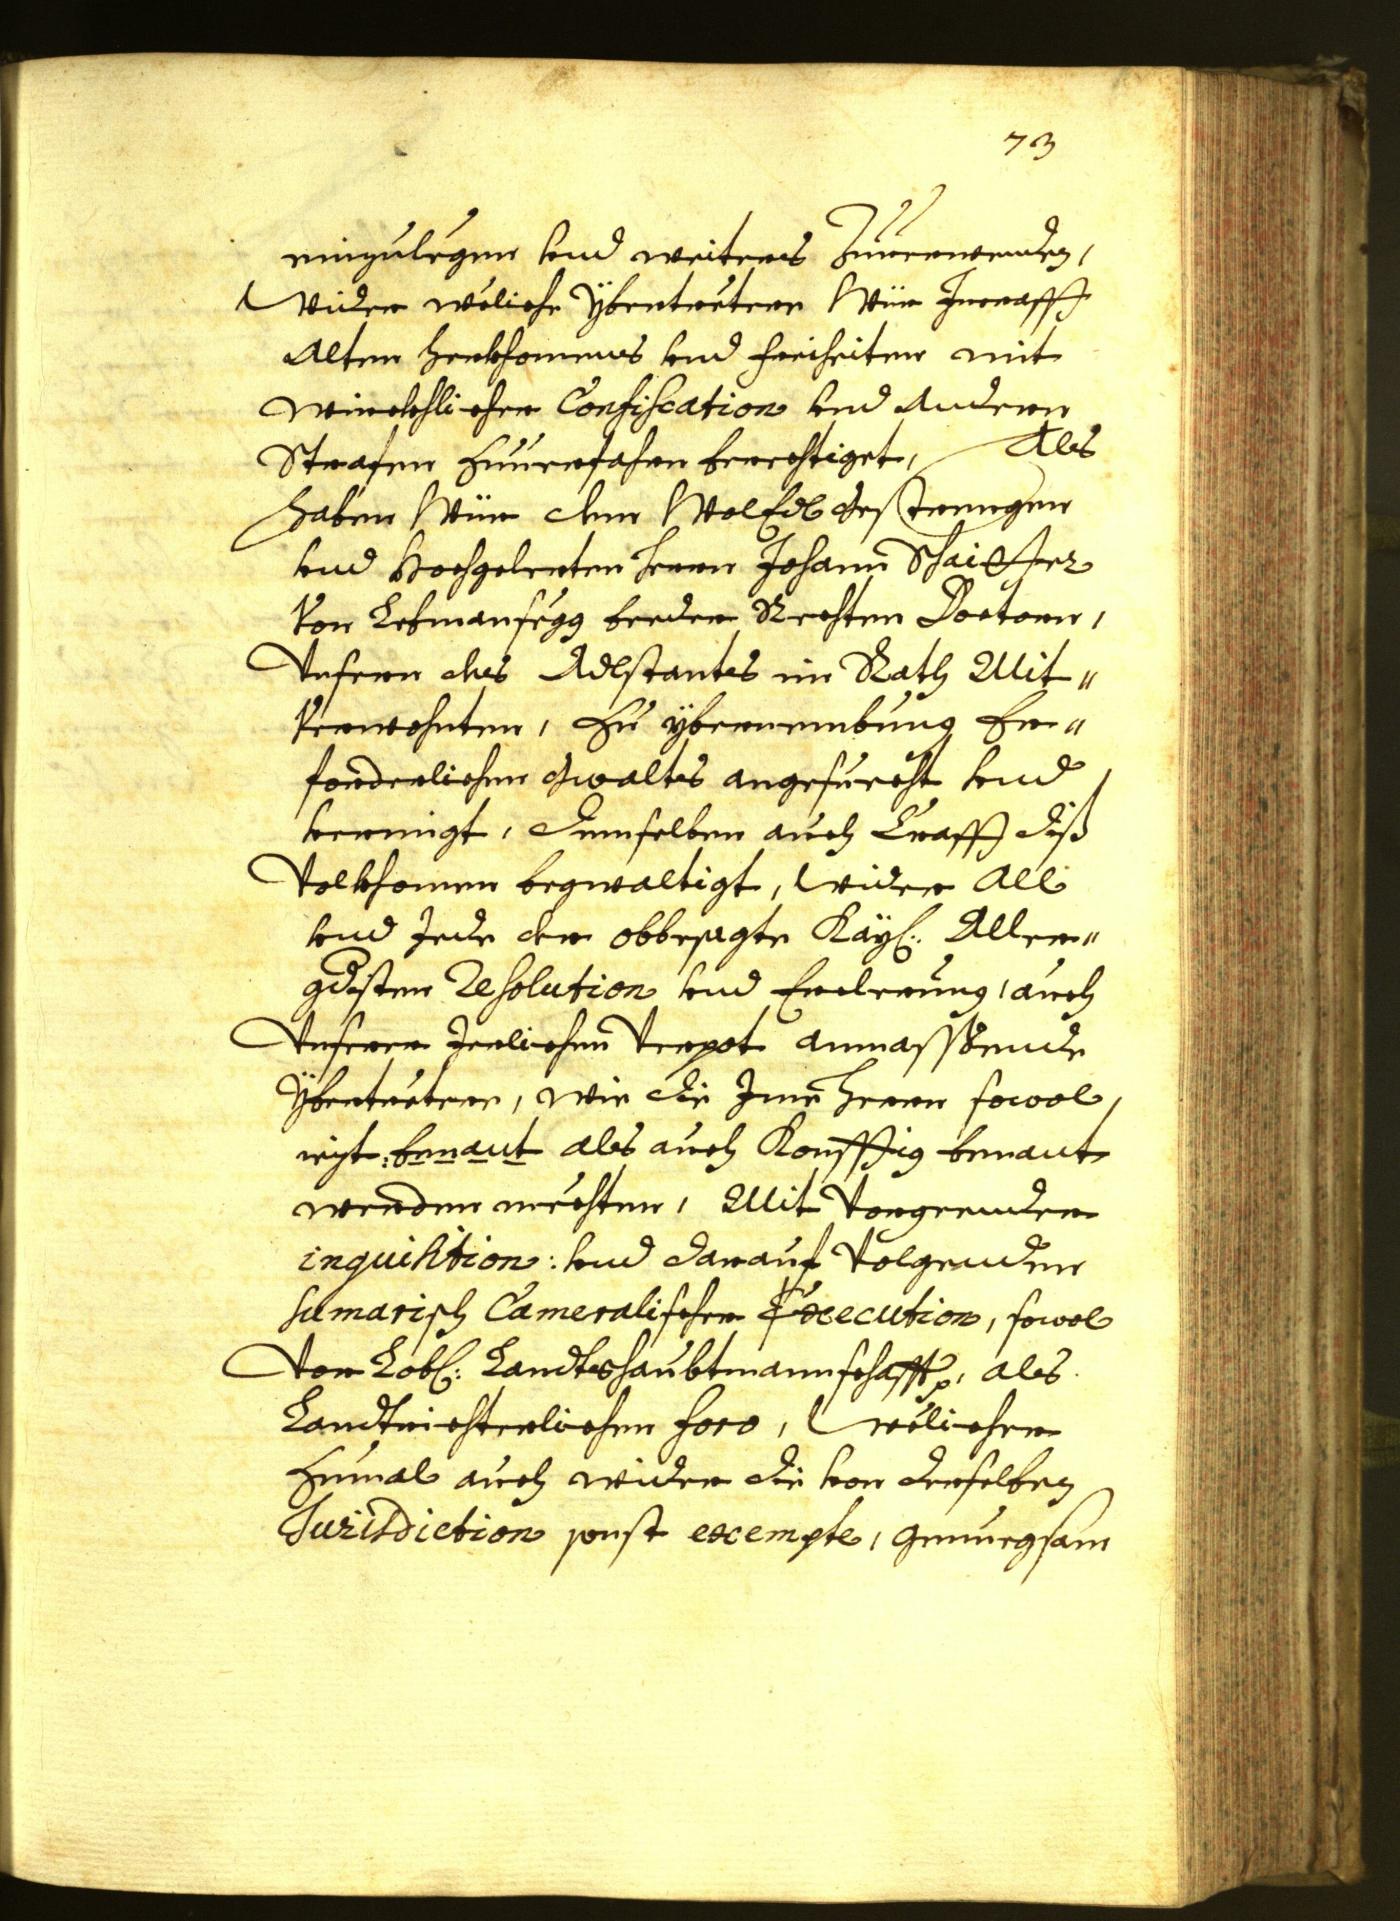 73
einzulegen vnd weiters Zuuerwenden,
Wider weliche Ÿbertreter Wür Incrafft
Alten herkhomens vnd freiheiten mit
würckhlicher Confiscation vnd Andern
Strafen Zuuerfahren berechtiget, Als
haben Wür dem WolEdl Gestrengen
vnd Hochgelerten herrn Johann Schaitter
Von Lebmansegg beeder Rechten Doctorn,
Vnsern des Adlstantes im Rath Mit„
Verwohnten, Zu ÿbernembung Er„
forderlichen Gwaltes angesuecht vnd
vermigt, demselben auch Crafft diß
Volkhomen begwaltigt, Wider All
vnd Jede der obbesagte Kaÿl: Aller„
gdisten Resolution vnd Erclerung, auch
Vnserer Jerlichen Verpot anmassende
Ÿbertreter, wie die Ime herrn sowol,
iezt: benant als auch Konfftig benant
werden mechten, Mit Vorgeender
inquisition: vnd darauf Volgender
sumarisch Cameralischer Execution, sowol
Vor Lobl: Landtshaubtmannschafft, als
Landtrichterlichen foro, Welicher
Zumal auch wider die von derselben
Jurisdiction sonst exempte, genuegsam